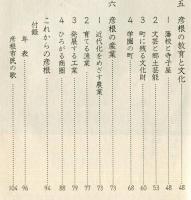 五 彦根の教育と文化 48
1 藩校と寺子屋 48
2 文芸と郷土芸能 53
3 町に残る文化財 60
4 学園の町 68
六 彦根の産業 73
1 近代化をめざす農業 73
2 育てる漁業 77
3 発展する工業 79
4 ひろがる商圏 88
これからの彦根 94
付録
年表 96
彦根市民の歌 104